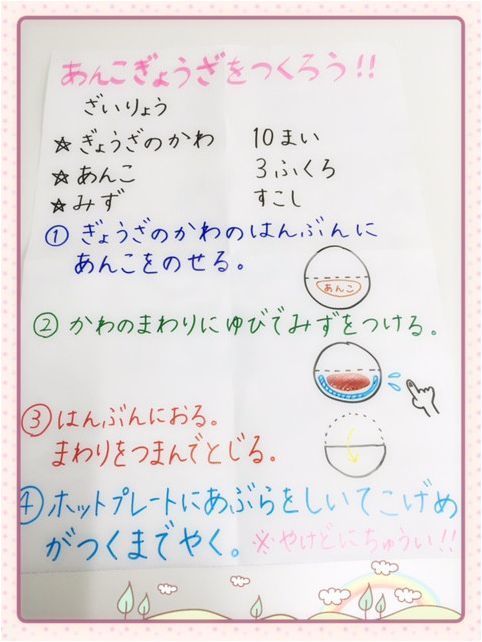 あんこぎょうざをつくろう!!
ざいりょう
☆ぎょうざのかわ 10まい
☆あんこ 3ふくろ
☆みず すこし
①ぎょうざのかわのはんぶんに
あんこをのせる。
あんこ
②かわのまわりにゆびでみずをつける。
③はんぶんにおる。
まわりをつまんでとじる。
④ホットプレートにあぶらをしいてこげめ
がつくまでやく。※やけどにちゅうい!!